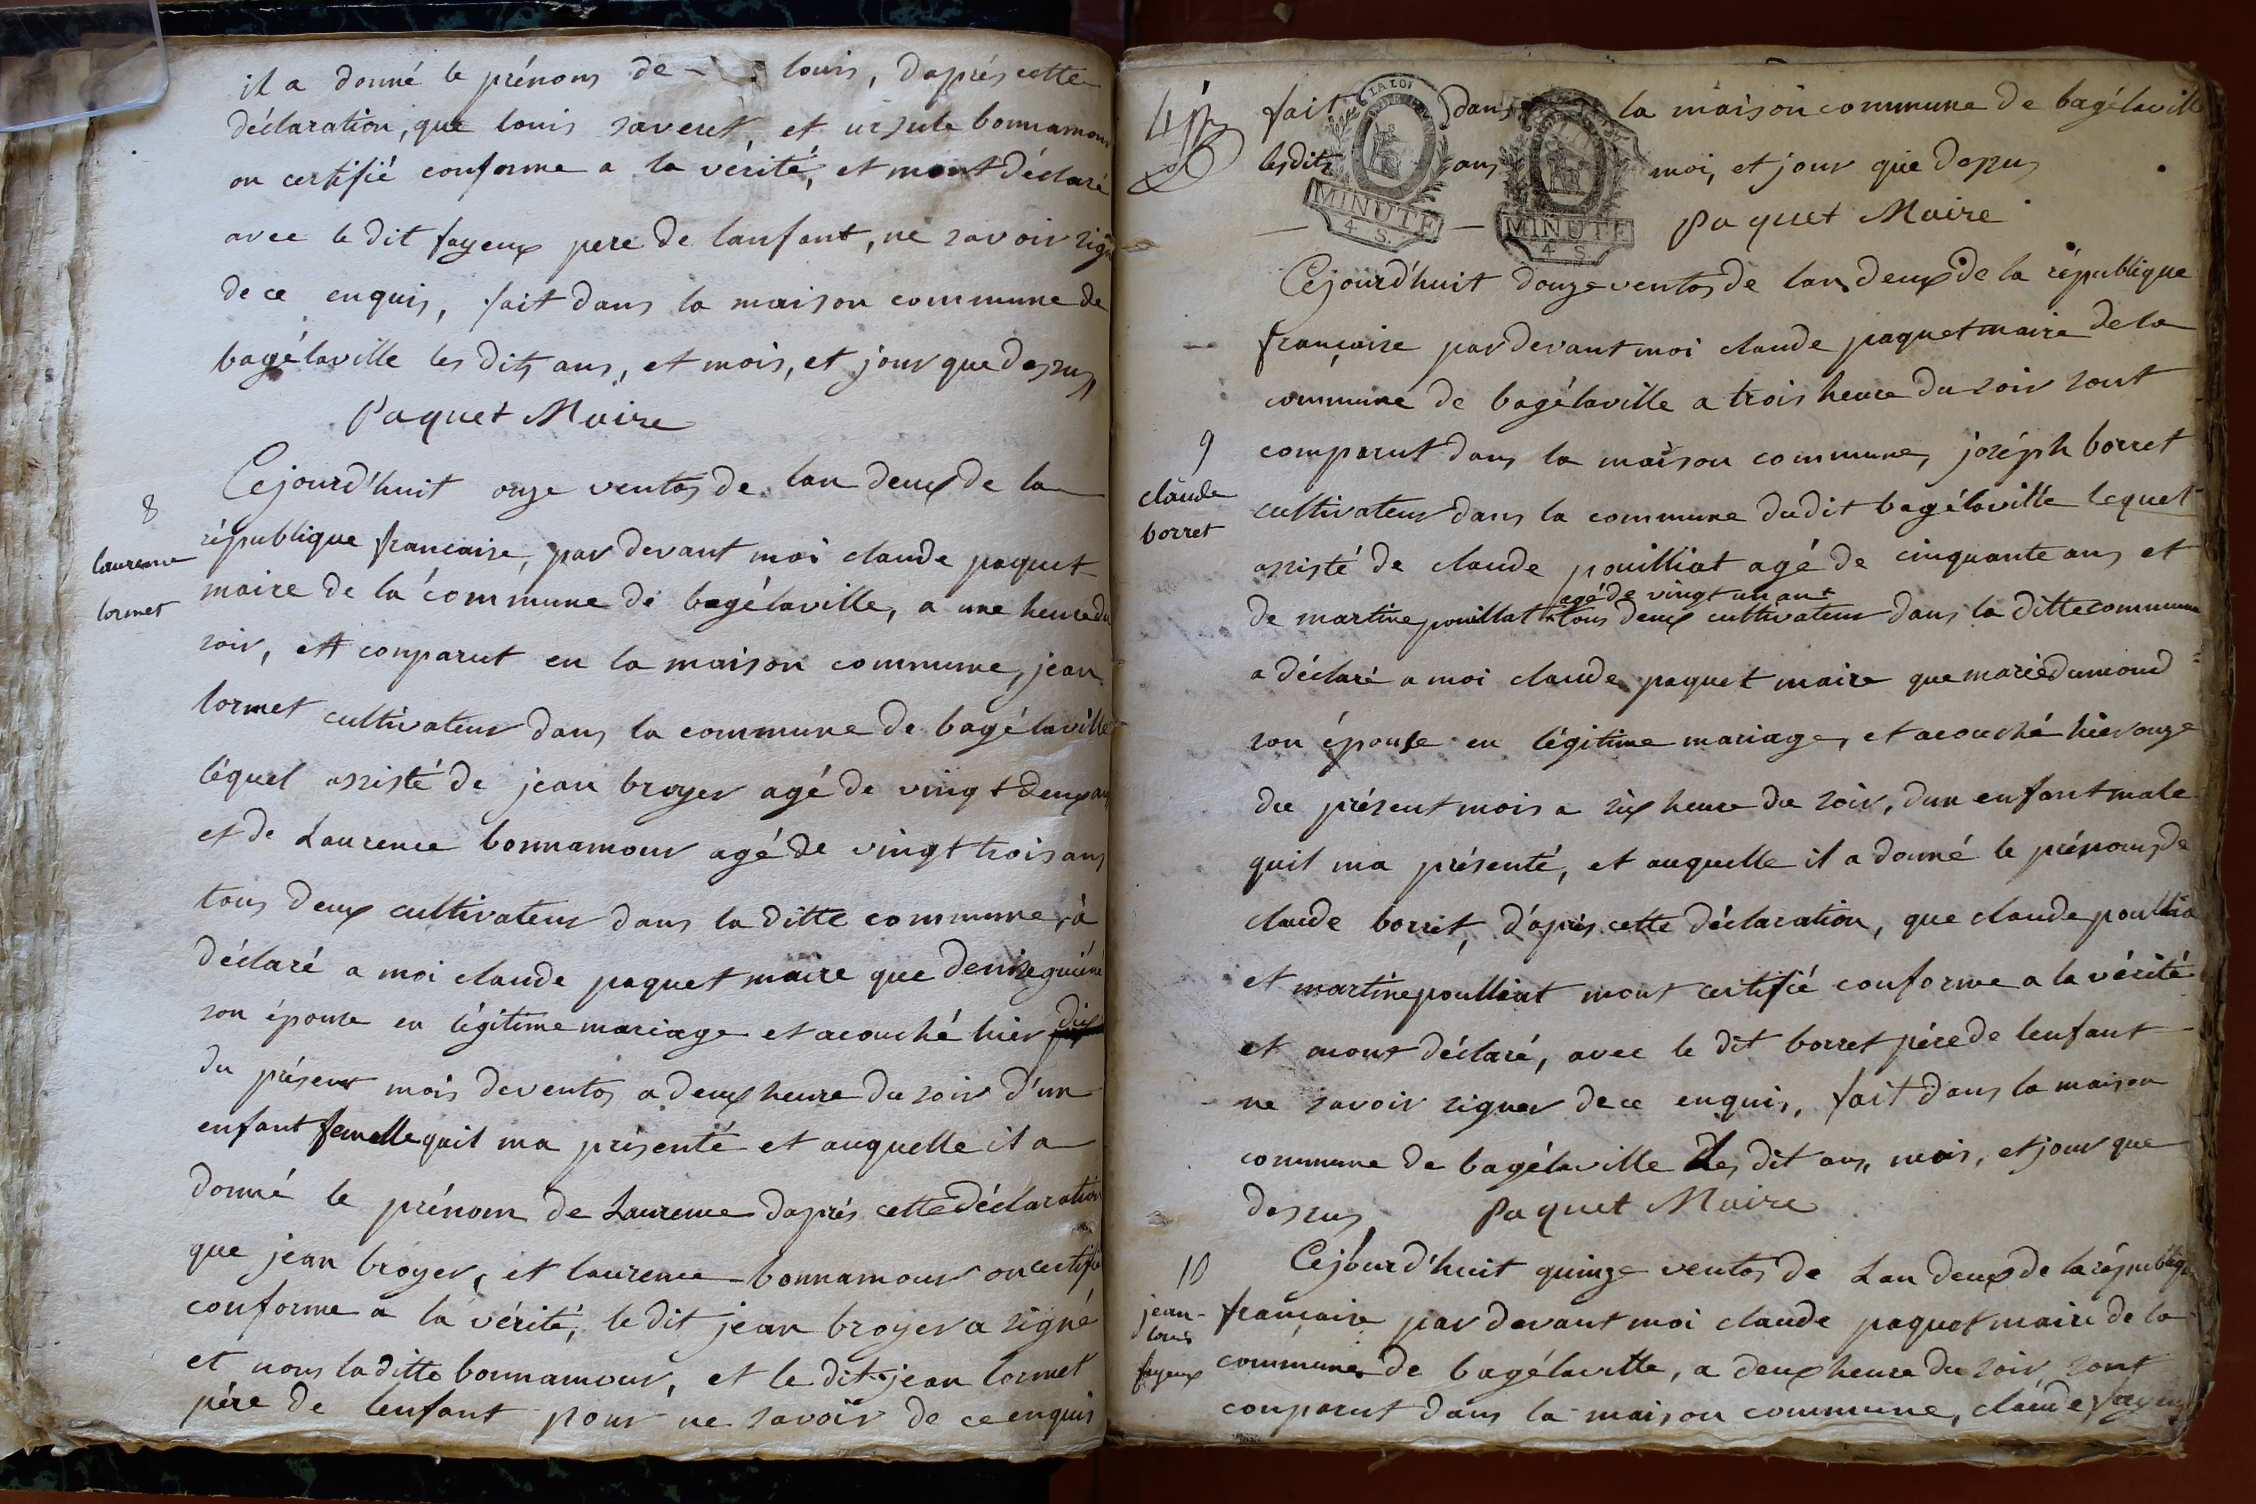 il a donné le prénoms de louis, daprés cette
déclaration, que louis saveret et ursule bonnamour
on certifié conforme a la vérité, et mont déclaré
avec le dit fayeux pere de lanfant, ne savoir signé
de ce enquis, fait dans la maison commune de
bagélaville les dits ans, et mois, et jour que dessus
Paquet Maire
8
laurence
lormet
Cejourd'huit onze ventos de lan deux de la
république francaise, par devant moi claude paquet
maire de la commune de bagélaville, a une heure du
soir, et conparut en la maison commune, jean
lormet cultivateur dans la commune de bagélaville
léquel assisté de jean broyer agé de vingt deux ans
et de Laurence bonnamour agé de vingt trois ans
tous deux cultivateur dans la ditte commune, à
déclaré a moi claude paquet maire que denise
son épouse en légitime mariage et acouché hier dix
du présent mois de ventos a deux heure du soir d'un
enfant femelle quil ma présenté et auquelle il a
donné le prénom de Laurence daprés cette déclaration
que jean broyer, et laurence bonnamour on certifié
conforme a la vérité, le dit jean broyer a signé
et nous la ditte bonnamour, et le dit jean lormet
pére de lenfant pour ne savoir de ce enquis
4
fait dans la maison commune de bagélaville
lesdits ans moi, et jour que dessus
LA LOI
MINUTE
4. S.
MINUTE
4. S.
Paquet Maire
Cejourd'huit douze ventos de lan deux de la république
francaire par devant moi claude paquet maire de la
commune de bagélaville a trois heure du soir sont
9
claude
borret
comparut dans la maison commune, joséph borret
cultivateur dans la commune dudit bagélaville lequel
assisté de claude pouilliat agé de cinquante ans et
agé de vingt un ans
de martine pouillat tous deux cultivateur dans la ditte commune
a déclaré a moi claude paquet maire que marie dumond
son épouse en légitime mariage, et acouché hier onze
du présent mois a six heure du soir, dun enfant male
quil ma présenté, et auquelle il a donné le prénoms de
claude borret, d'aprés cette déclaration, que claude poullia
et martine poulliat mont certifié conforme a la vérité
et mont déclaré, avec le dit borret pére de lenfant
ne savoir signer de ce enquis, fait dans la maison
commune de bagélaville Les dit ans, mois, et jour que
dessus Paquet Maire
10
jean-
louis
fayeux
Cejourd'huit quinze ventos de Lan deux de la république
francaire par devant moi claude paquet maire de la
commune de bagélaville, a deux heure du soir, sont
conparut dans la maison commune, claude fayeux